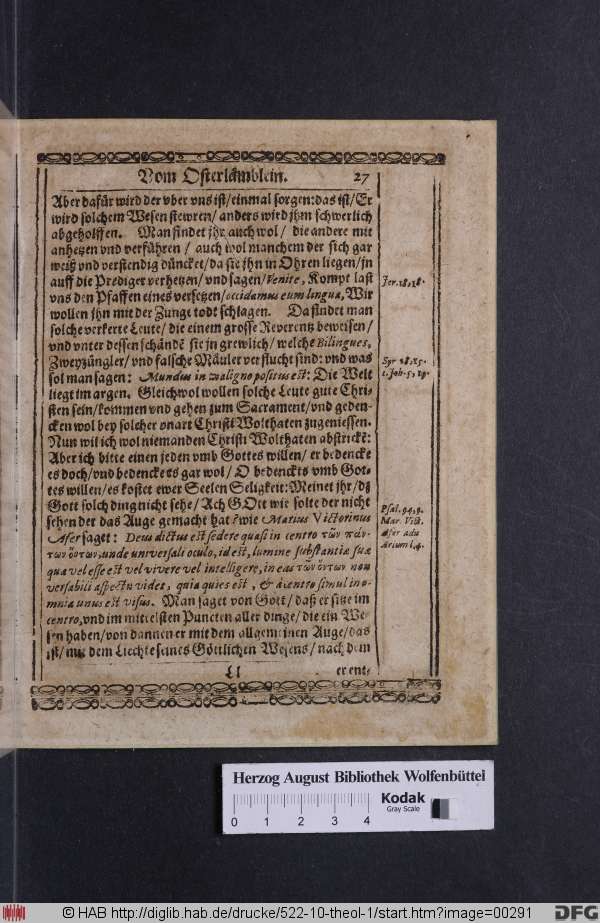 Vom Osterlämblein. 27
Aber dafür wird der vber vns ist/einmal sorgen: das ist/Er
wird solchem Wesen stewren/ anders wird jhm schwerlich
abgeholffen. Man findet jhr auch wol/ die andere mit
anhetzen vnd verführen/ auch wol manchem der sich gar
weiß vnd verstendig düncket/da sie jhn in Ohren liegen/in
auff die Prediger verhetzen/ vnd sagen/Venite, Kompt last
vns den Pfaffen eines versetzen/occidamus eum lingua, Wir
wollen jhn mit der Zunge todt schlagen. Da findet man
solche verkerte Leute/ die einem grosse Reverentz beweisen/
vnd vnter dessen schändẽ sie jn grewlich/ welche Bilingues,
Zweyzüngler/ vnd falsche Mäuler verflucht sind: vnd was
sol man sagen: Mundus in maligno positus est: Die Welt
liegt im argen. Gleichwol wollen solche Leute gute Chri-
sten sein/kommen vnd gehen zum Sacrament/vnd geden-
cken wol bey solcher vnart Christi Wolthaten zugeniessen.
Nun wil ich wol niemanden Christi Wolthaten abstrickẽ:
Aber ich bitte einen jeden vmb Gottes willen/ er bedencke
es doch/vnd bedencke es gar wol/ O bedenckts vmb Got-
tes willen/es kostet ewer Seelen Seligkeit: Meinet jhr/dz
Gott solch ding nicht sehe/ Ach GOtt wie solte der nicht
sehen der das Auge gemacht hat? wie Marius Victorinus
Afer saget: Deus dictus est sedere quasi in centro τῶν πάν-
των ὄντων, unde universali oculo, id est, lumine substantiæ suæ
qua vel esse est vel vivere vel intelligere, in eas τῶν ὄντων non
versabili aspectu videt, quia quies est, & à centro simul in o-
mnia unus est visus. Man saget von Gott/ daß er sitze im
centro, vnd im mittelsten Puncten aller dinge/ die ein We-
sen haben/von dannen er mit dem allgemeinen Auge/das
ist/ mit dem Liechte seines Göttlichen Wesens/ nach dem
Ll er ent-
Jer. 18, 18.
Syr 28, 15.
1. Joh. 5, 19.
Psal. 94, 9.
Mar. Vict.
Afer adu
Arium l. 4.
Herzog August Bibliothek Wolfenbüttel
Kodak
Gray Scale
0 1 2 3 4
© HAB http://diglib.hab.de/drucke/522-10-theol-1/start.htm?image=00291
DFG